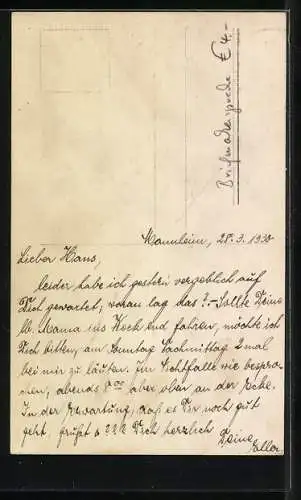 Briefmarkensprache € 4.-
Mannheim, 28.3.1930
Lieber Hans,
leider habe ich gestern vergeblich auf
Dich gewartet, woran lag das?- Sollte Deine
lb. Mama ins Weekend fahren, möchte ich
Dich bitten, am Sonntag Nachmittag 2 mal
bei mir zu läuten. Im Nichtfalle wie bespro-
chen, abends 8 00 Uhr oben an der Ecke.
In der Erwartung, daß es Dir noch gut
geht, grüßt Dich herzlich Deine
Ella.